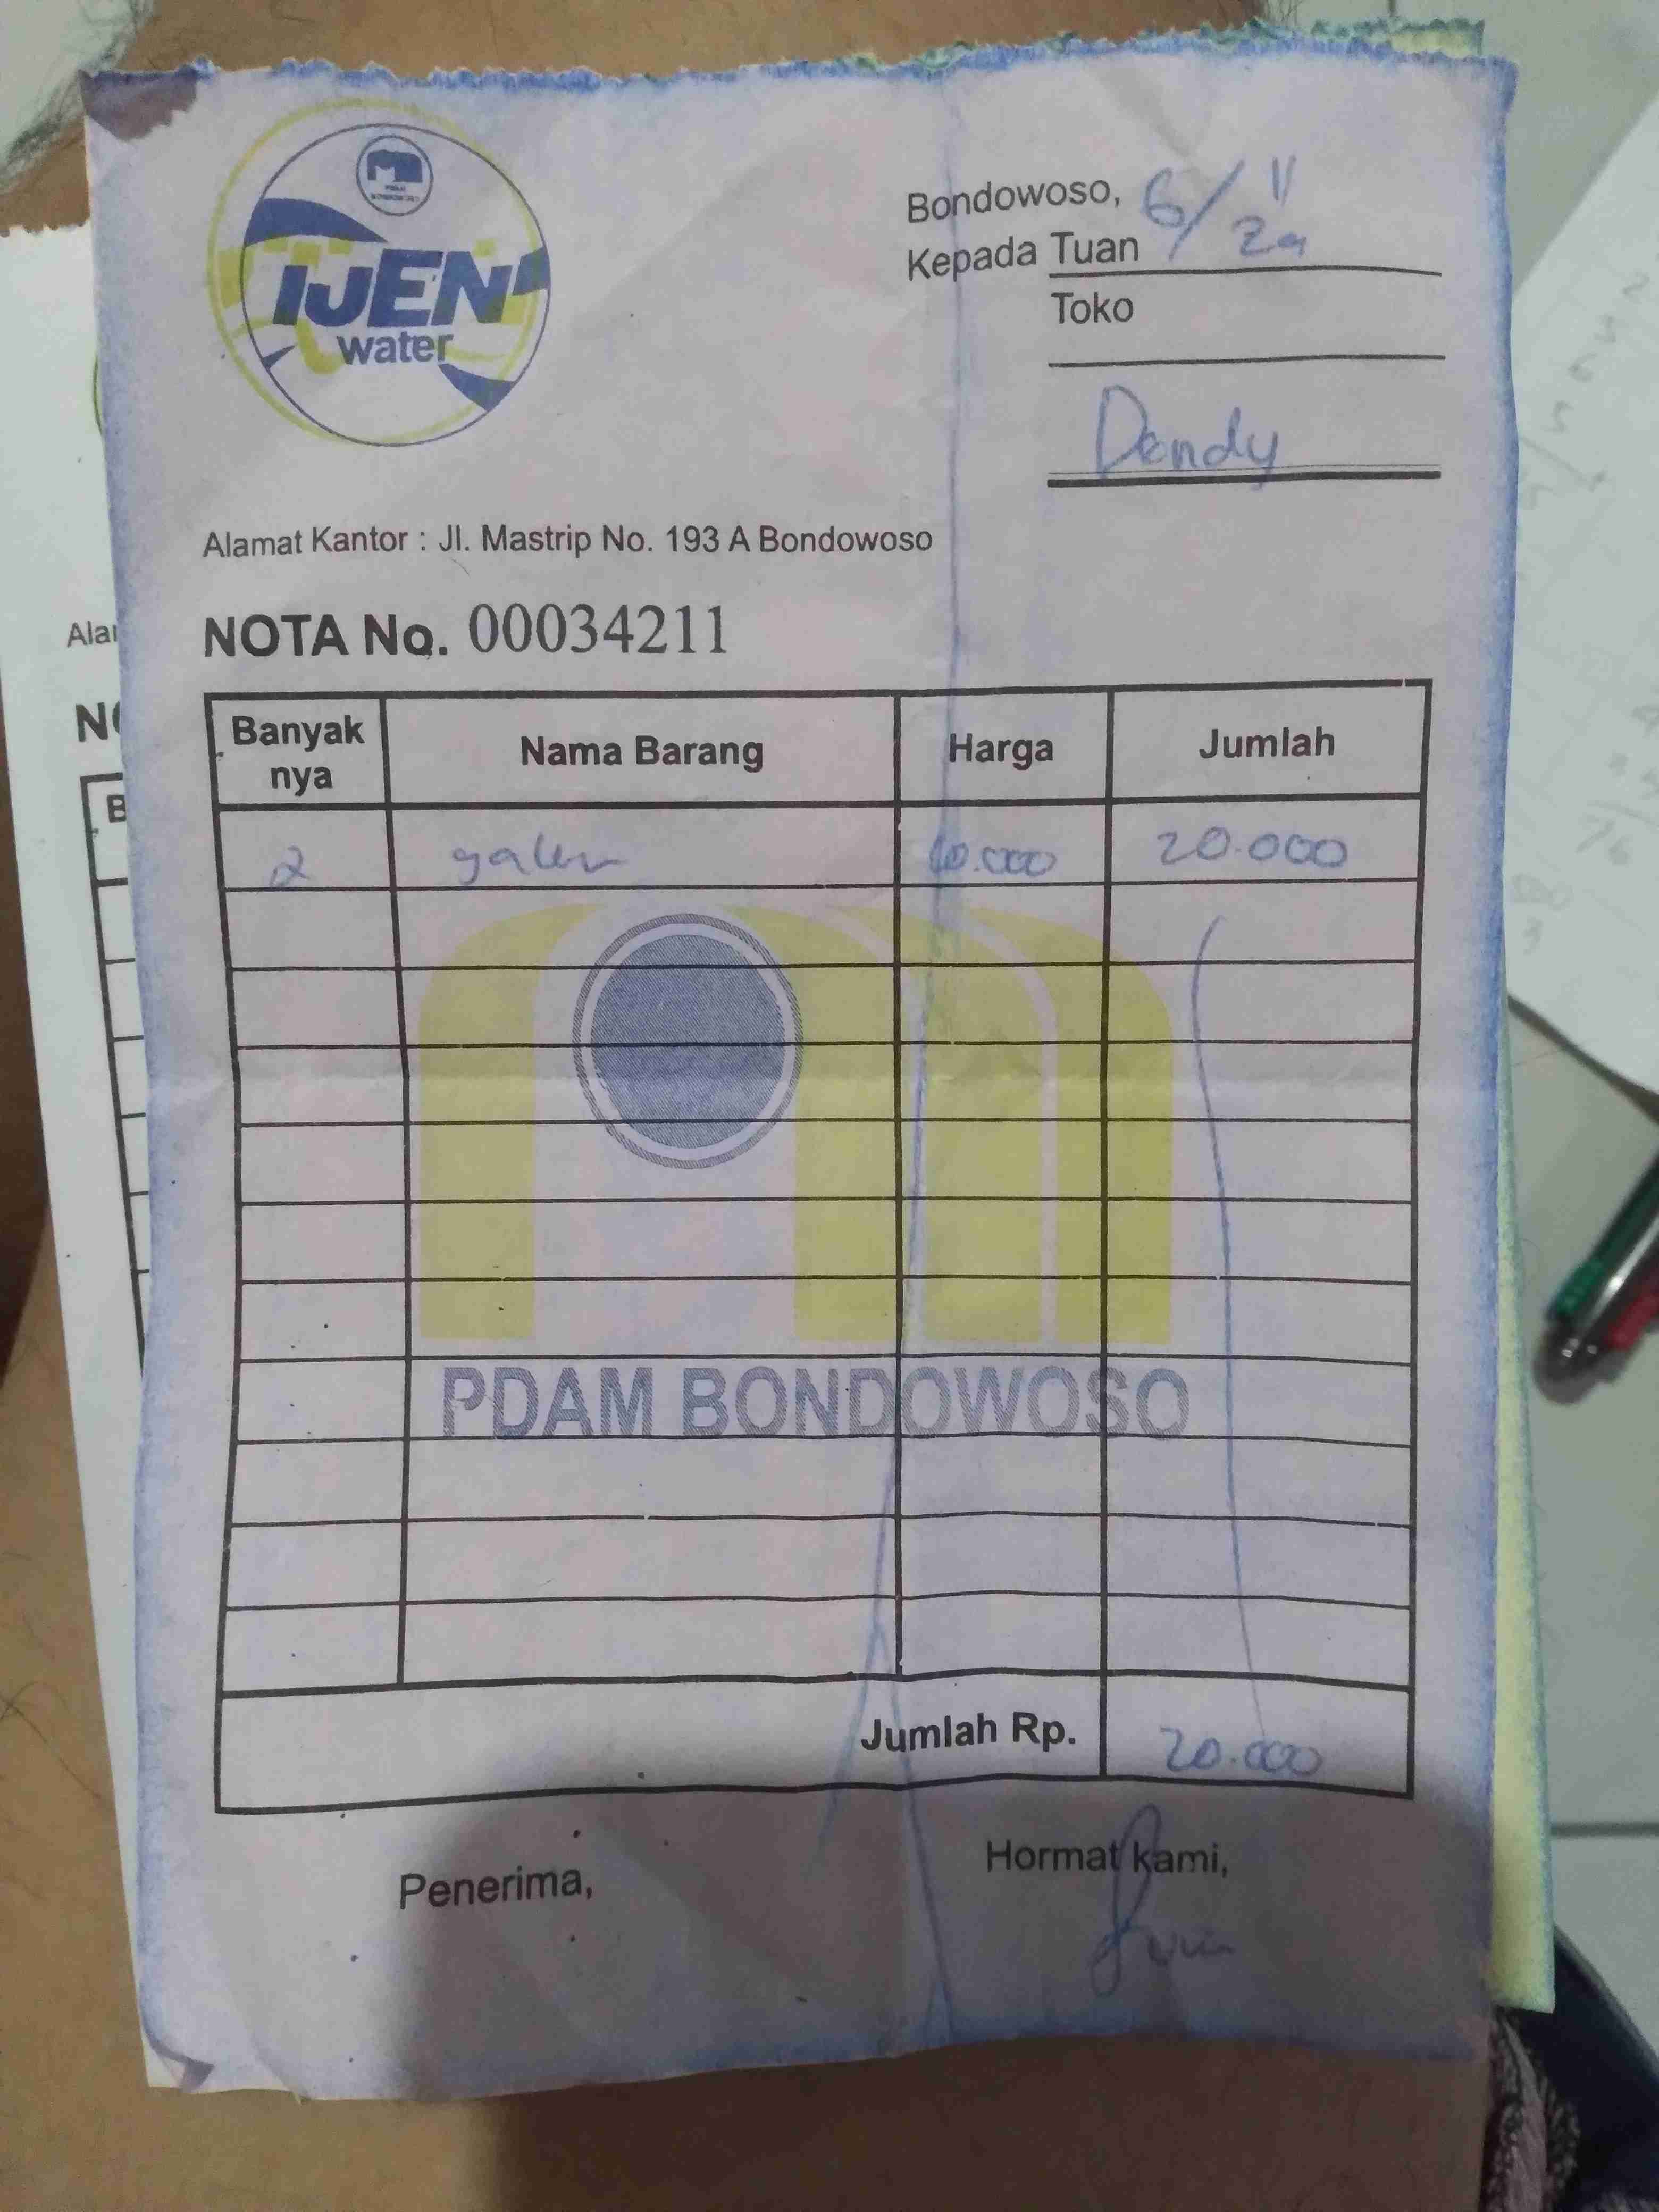 IJEN
water
Bondowoso, 6/11
Kepada Tuan
Toko
Dendy
Alamat Kantor : Jl. Mastrip No. 193 A Bondowoso
NOTA No. 00034211
Banyak nya Nama Barang Harga Jumlah
2 galon 10.000 20.000
PDAM BONDOWOSO
Jumlah Rp. 20.000
Penerima, Hormat kami,
Alar
NO
B